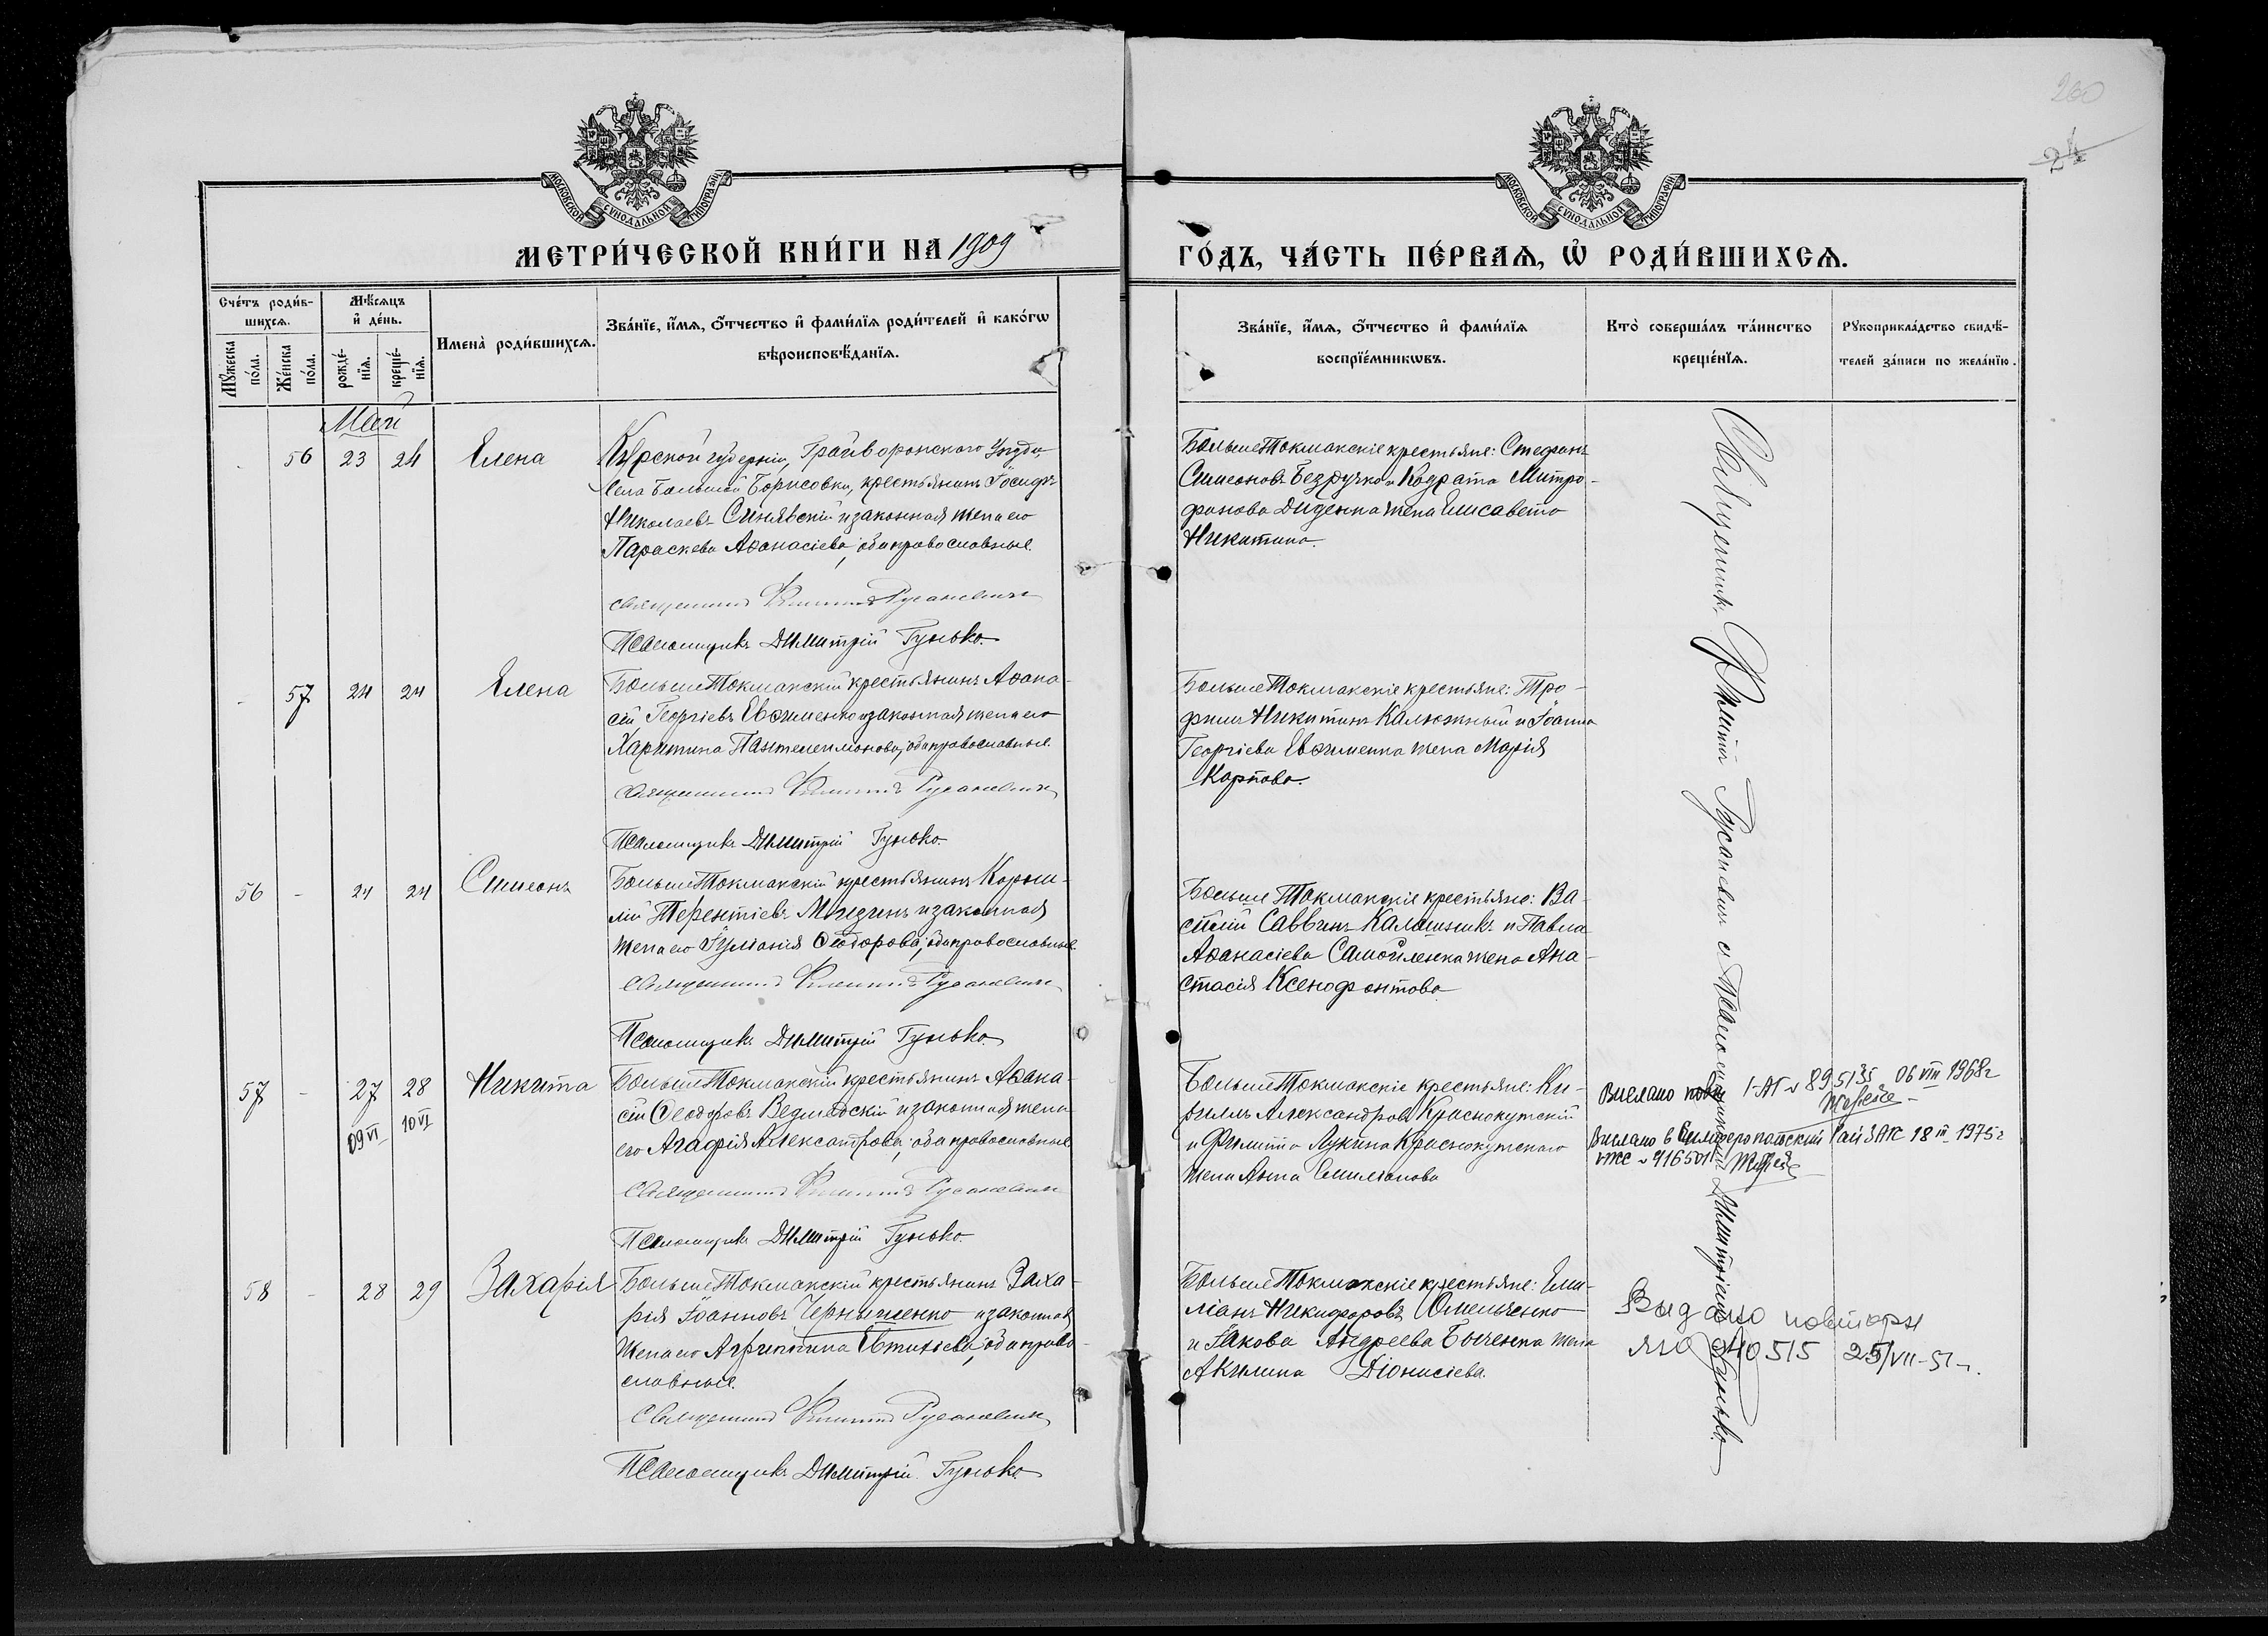 260
24
МОСКОВСКОЙ СѴНОДАЛЬНОЙ ТИПОГРАФІИ
МОСКОВСКОЙ СѴНОДАЛЬНОЙ ТИПОГРАФІИ
МЕТРИ́ЧЕСКОЙ КНИ́ГИ НА 1909
ГО́ДЪ, ЧА́СТЬ ПЕ́РВАѦ, Ѡ҆ РОДИ́ВШИХСѦ.
Сче́тъ роди́в-
шихсѧ.
Мѣ́сѧцъ
и҆ де́нь.
Мꙋ́жеска
по́ла.
Же́нска
по́ла.
рожде́-
нїѧ.
креще́-
нїѧ.
Имена̀ роди́вшихсѧ.
Зва́нїе, и҆́мѧ, ѻ҆́тчество и҆ фами́лїѧ роди́телей и҆ како́гѡ
вѣроисповѣ́данїѧ.
Зва́нїе, и҆́мѧ, ѻ҆́тчество и҆ фами́лїѧ
воспрїе́мникѡвъ.
Кто̀ соверша́лъ та́инство
креще́нїѧ.
Рꙋкоприкла́дство свидѣ́-
телей за́писи по жела́нїю.
Май
56 23 24 Елена
Курской губерніи, Грайворонского Уѣзда
Села Большой Борисовки, крестьянинъ Іосифъ
Николаевъ Синявскій и законная жена его
Параскева Аѳанасіева, оба православные.
Священникъ Филиппъ Русаневичъ
Псаломщикъ Димитрій Гунько.
БольшеТокмакскіе крестьяне: Стефанъ
Симеоновъ Безручко и Кодрата Митро-
фанова Диденка жена Елисавета
Никитина.
57 24 24 Елена
БольшеТокмакскій крестьянинъ Аѳана-
сій Георгіевъ Евѳименко и законная жена его
Харитина Пантелеимонова, оба православные.
Священникъ Филиппъ Русаневичъ
Псаломщикъ Димитрій Гунько.
БольшеТокмакскіе крестьяне: Тро-
фимъ Никитинъ Калюжный и Іоанна
Георгіева Евѳименка жена Марія
Карпова.
56 - 24 24 Симеонъ
БольшеТокмакскій крестьянинъ Корни-
лій Терентіевъ и законная
жена его Іуліанія Ѳеодорова, оба православные
Священникъ Филиппъ Русаневичъ
Псаломщикъ Димитрій Гунько.
БольшеТокмакскіе крестьяне: Ва-
силій Саввинъ Калашникъ и Павла
Аѳанасіева Самойленка жена Ана-
стасія Ксенофонтова
57 - 27 28 Никита
09 VI 10 VI
БольшеТокмакскій крестьянинъ Аѳана-
сій Ѳеодоровъ и законная жена
его Агафія Александрова, оба православные
Священникъ Филиппъ Русаневичъ
Псаломщикъ Димитрій Гунько.
БольшеТокмакскіе крестьяне: Ки-
риллъ Александровъ Краснокутскій
и Филиппа Лукина Краснокутскаго
жена Анна Емиліанова
Выслано I-АП № 895135 06 VIII 1968г
Выслано в Симферопольский РайЗАГС 18 III 1975г
№ 416501
58 - 28 29 Захарія
БольшеТокмакскій крестьянинъ Заха-
рія Іоанновъ Чернышенко и законная
жена его Агриппина Евтихіева, оба право-
славные.
Священникъ Филиппъ Русаневичъ
Псаломщикъ Димитрій Гунько.
БольшеТокмакскіе крестьяне: Еми-
ліанъ Никифоровъ Омельченко
и Іакова Андреева жена
Акилина Діонисіева.
Видано повторн
ЯЮ 040515 25/VII-51г.
Священникъ Филиппъ Русаневичъ и Псаломщикъ Димитрій Гунько.